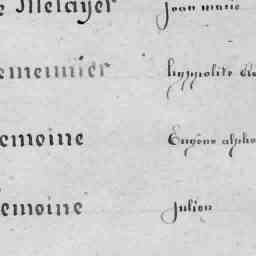 e Metayer Jean marie
emeunier hyppolite
emoine Eugène alpho
emoine Julien